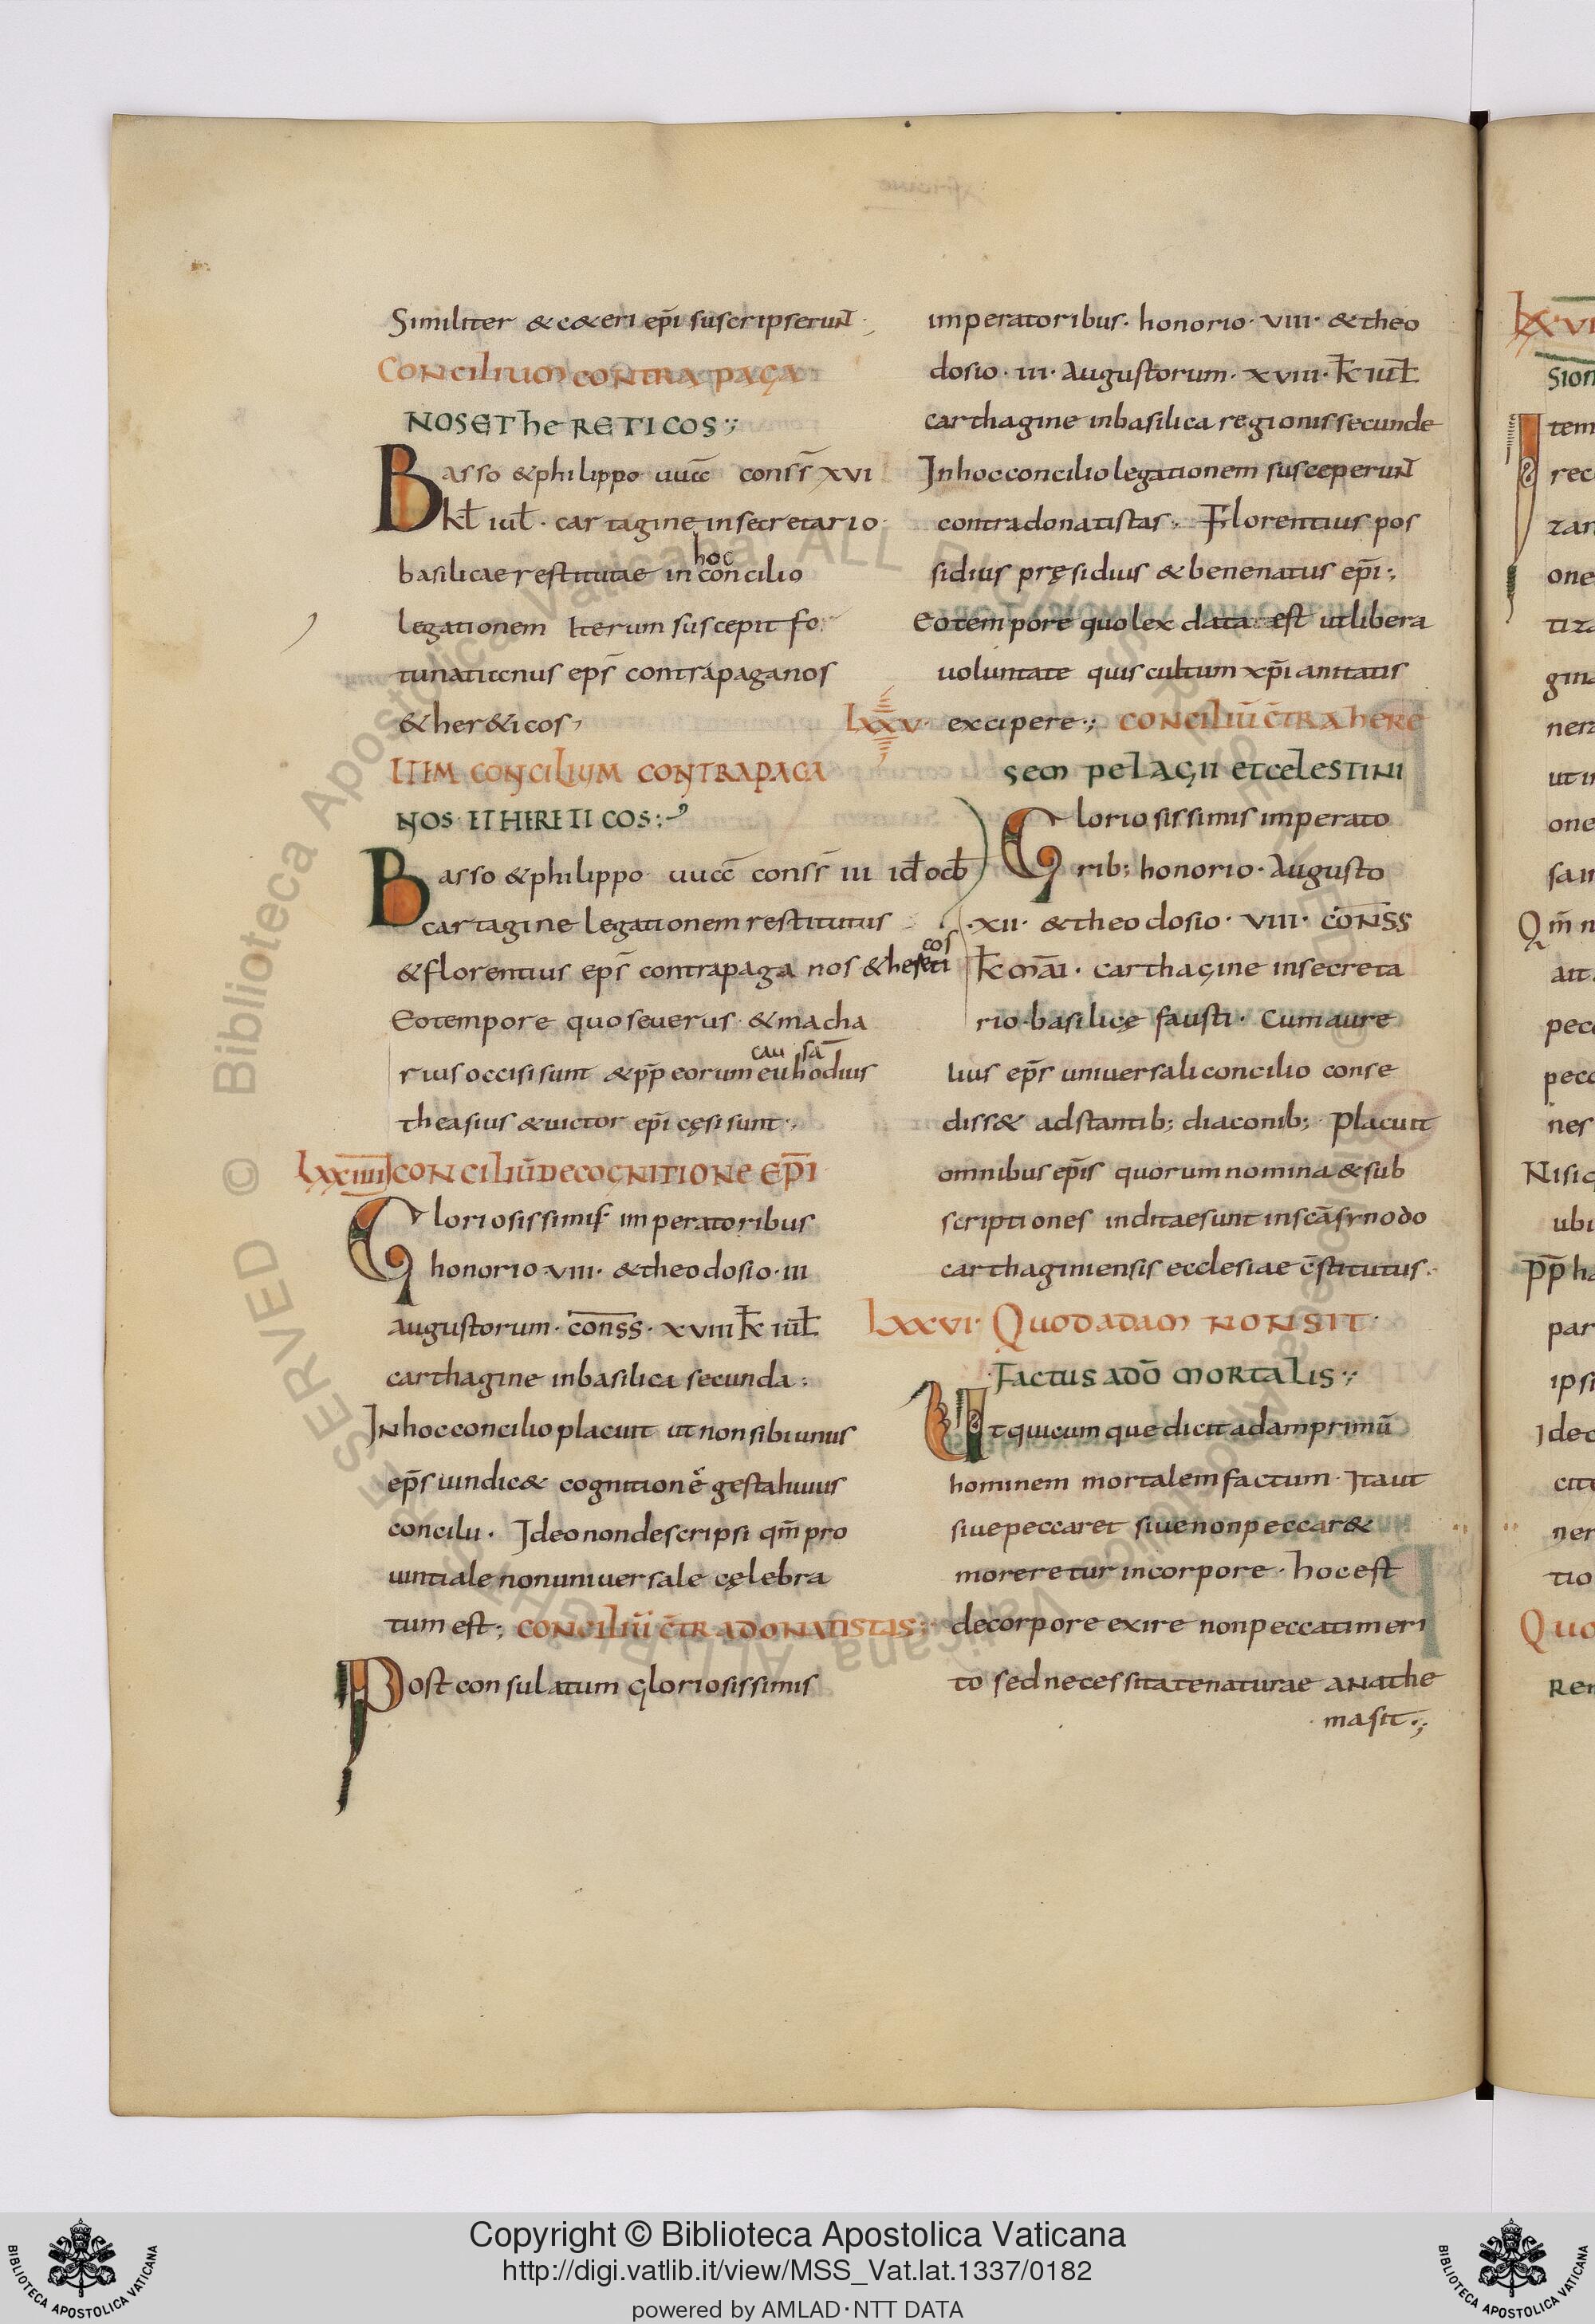 Similiter & c&eri ep̄i suscripserunt
CONCILIUM CONTRA PAGA
NOS ET heRETICOS
Basso & philippo uucc̄ conss̄ XVI
kl̄ iul̄ · cartagine in secretario
hoc
basilicae restitutae in concilio
legationem Iterum suscepit fo
tunaticnus eps̄ contra paganos
& her&icos
ITEM CONCILIUM CONTRA PAGA
NOS ET HERETICOS
Basso & philippo uucc̄ conss̄ III id̄ octb̄
cartagine legationem restitutus
cos
& florentius eps̄ contra paga nos & hereti
Eo tempore quo seuerus & macha
cau sā
rius occisi sunt & pp̄ eorum euhodius
theasius & uictor ep̄i cęsi sunt
LXXIIII CONCILIŪ DE COGNITIONE EP̄I
Gloriosissimis imperatoribus
honorio · VIII · & theodosio · III
augustorum · conss̄ · XVIII k̄ iul̄
carthagine in basilica secunda
In hoc concilio placuit ut non sibi unus
ep̄s uindic& cognitionē gesta huius
concilii · Ideo non descripsi qm̄ pro
uintiale non uniuersale cęlebra
tum est; CONCILIŪ C̄TRA DONATISTAS
Post consulatum gloriosissimis
imperatoribus · honorio · VIII · & theo
dosio · III · Augustorum · XVIII · k̄ iul̄
carthagine in basilica regionis secunde
In hoc concilio legationem susceperunt
contra donatistas · Florentius pos
sidius pręsidius & benenatus ep̄i
Eo tempore quo lex data est ut libera
uoluntate quis cultum xp̄ianitatis
LXXV · excipere; CONCILIŪ C̄TRA HERE
SEM PELAGII ET CELESTINI
Gloriosissimis imperato
rib; honorio · Augusto
· XII · & theodosio · VIII · CONSS̄
k̄ mai · carthagine in secreta
rio basilicę fausti · Cum aure
lius ep̄s uniuersali concilio conse
diss& adstantib; diaconib; · Placuit
omnibus ep̄is quorum nomina & sub
scriptiones inditae sunt in scā synodo
carthaginiensis ecclesiae c̄stitutus
LXXVI · QUOD ADAM NON SIT
FACTUS A DŌ MORTALIS
Ut quicumque dicit adam primū
hominem mortalem factum · Ita ut
siue peccaret siue non peccar&
moreretur in corpore · hoc est
de corpore exire non peccati meri
to sed necessitate naturae anathe
masit;
Copyright © Biblioteca Apostolica Vaticana
http://digi.vatlib.it/view/MSS_Vat.lat.1337/0182
powered by AMLAD·NTT DATA